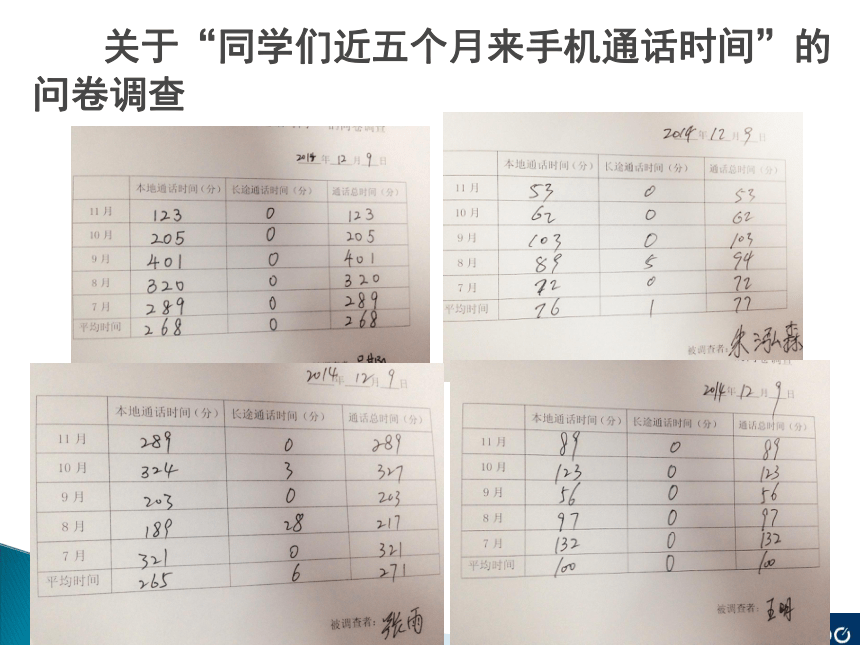 关于“同学们近五个月来手机通话时间”的
问卷调查
的问卷调查
2014年12月9日
本地通话时间(分) 长途通话时间(分) 通话总时间(分)
11月 123 0 123
10月 205 0 205
9月 401 0 401
8月 320 0 320
7月 289 0 289
平均时间 268 0 268
2014年12月9日
本地通话时间(分) 长途通话时间(分) 通话总时间(分)
11月 53 0 53
10月 62 0 62
9月 103 0 103
8月 89 5 94
7月 72 0 72
平均时间 76 1 77
被调查者:朱泓森
2014年12月9日
本地通话时间(分) 长途通话时间(分) 通话总时间(分)
11月 289 0 289
10月 324 3 327
9月 203 0 203
8月 189 28 217
7月 321 0 321
平均时间 265 6 271
被调查者:张雨
2014年12月9日
本地通话时间(分) 长途通话时间(分) 通话总时间(分)
11月 89 0 89
10月 123 0 123
9月 56 0 56
8月 97 0 97
7月 132 0 132
平均时间 100 0 100
被调查者:王明